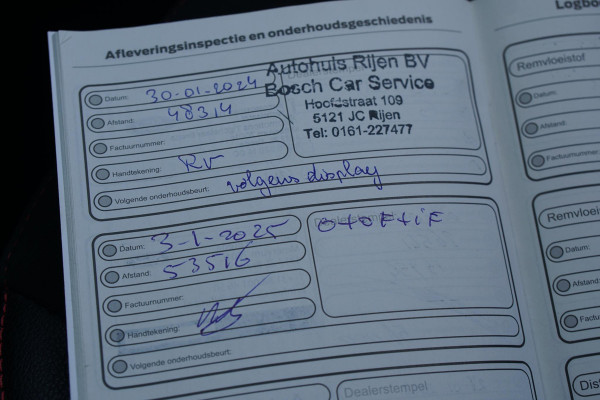 Afleveringsinspectie en onderhoudsgeschiedenis
Datum: 30-01-2024
Afstand: 48314
Factuurnummer:
Handtekening: RV
Volgende onderhoudsbeurt: volgens display
Autohuis Rijen BV
Bosch Car Service
Hoofdstraat 109
5121 JC Rijen
Tel: 0161-227477
Datum: 3-1-2025
Afstand: 53516
Factuurnummer:
Handtekening:
Volgende onderhoudsbeurt:
Dealerstempel
Dealerstempel
Remvloeistof
Datum:
Afstand:
Factuurnummer:
Datum:
Afstand: